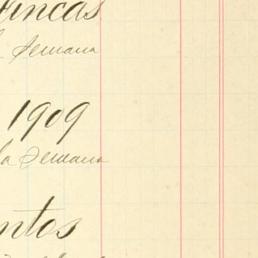 Fincas
la Semana
1909
la Semana
ntos